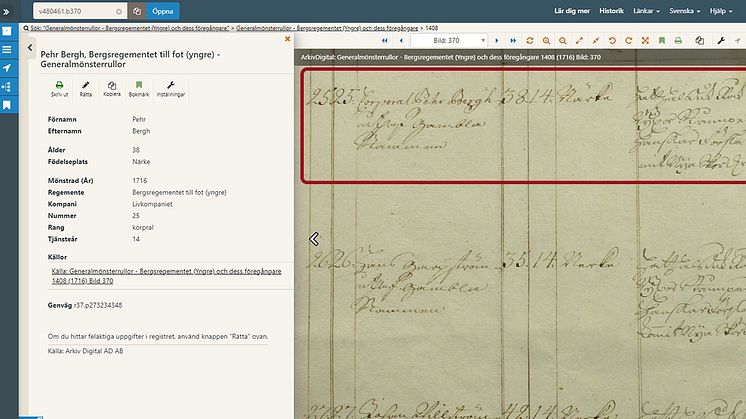 v480461.b370
Öppna
Lär dig mer
Historik
Länkar
Svenska
Hjälp
Sök: "Generalmönsterrullor - Bergsregementet (Yngre) och dess föregångare" > Generalmönsterrullor - Bergsregementet (Yngre) och dess föregångare > 1408
Bild: 370
ArkivDigital: Generalmönsterrullor - Bergsregementet (Yngre) och dess föregångare 1408 (1716) Bild: 370
Pehr Bergh, Bergsregementet till fot (yngre) -
Generalmönsterrullor
Skriv ut
Rätta
Kopiera
Bokmärk
Inställningar
Förnamn Pehr
Efternamn Bergh
Ålder 38
Födelseplats Närke
Mönstrad (År) 1716
Regemente Bergsregementet till fot (yngre)
Kompani Livkompaniet
Nummer 25
Rang korpral
Tjänsteår 14
Källor
Källa: Generalmönsterrullor - Bergsregementet (Yngre) och dess föregångare
1408 (1716) Bild 370
Genväg r37.p273234348
Om du hittar felaktiga uppgifter i registret, använd knappen "Rätta" ovan.
Källa: Arkiv Digital AD AB
25 25 Corporal Pehr Bergh 38. 14. Närke
Gambla
Nammen
26 26 Hans 35. 14. Närke
Gambla
Nammen
27 27